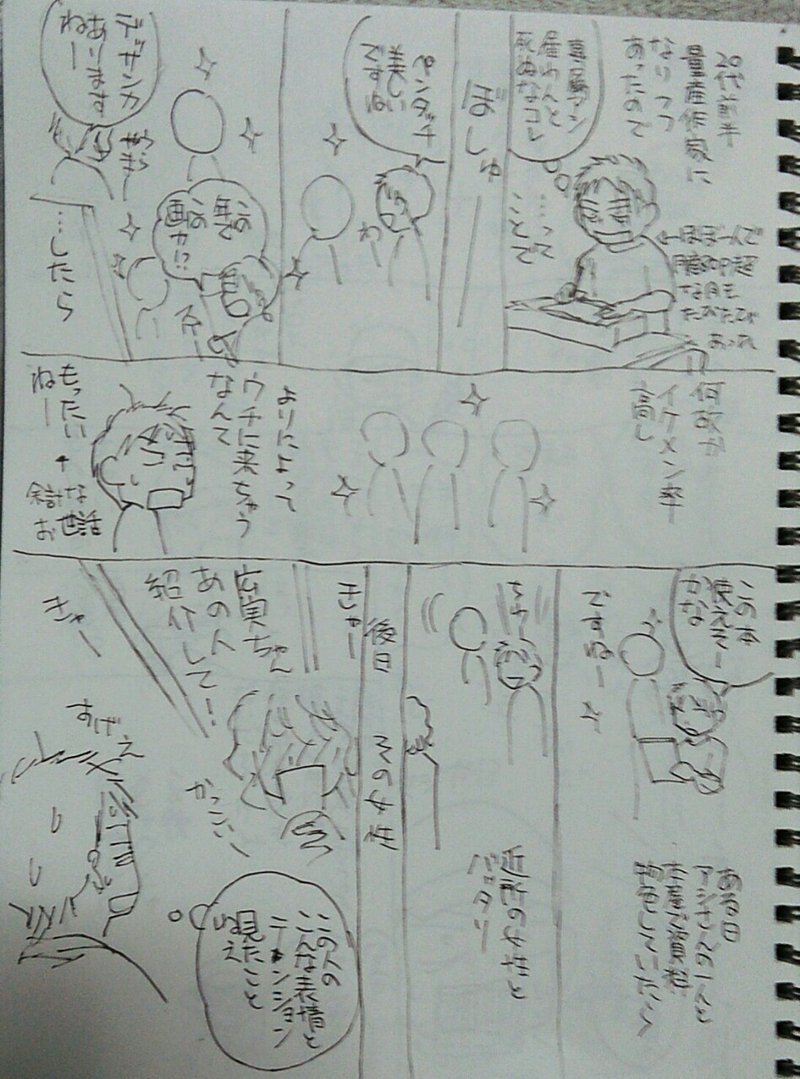 20代前半
量産作家に
なりつつ
あったので
専属アシ
雇わんと
死ぬなコレ
…って
ことで
ぼしゅー
ペンタッチ
美しい
ですね
わー
この年で
この
画力!?
デッサン力
あります
ねー
…したら
何故か
イケメン率
高し
よりによって
ウチに来ちゃう
なんて
もったい
ねー
余計な
お世話
この本
使えそー
かな
ですねー
ある日
アシさんの一人と
本屋で資料
物色していたら
近所の女性と
バッタリ
後日
その女性
きゃー
広実ちゃん
あの人
紹介してー
かっこいいー
きゃー
この人の
こんな表情と
テンション
見たこと
ねえ
すげえ